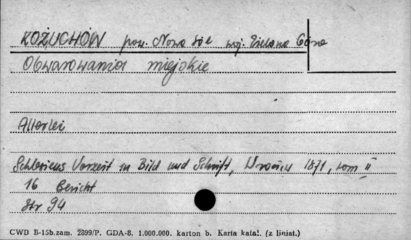 KOŻUCHÓW pow. Nowa Sól woj. Zielona Góra
Obwarowania miejskie
Allerlei
Schlesiens Vorzeit in Bild und Schrift, 1871, tom II
16 Bericht
Str 94
CWD B-15b.zam. 2899/P. GDA-8. 1.000.000. karton b. Karta katal. (z liniat.)